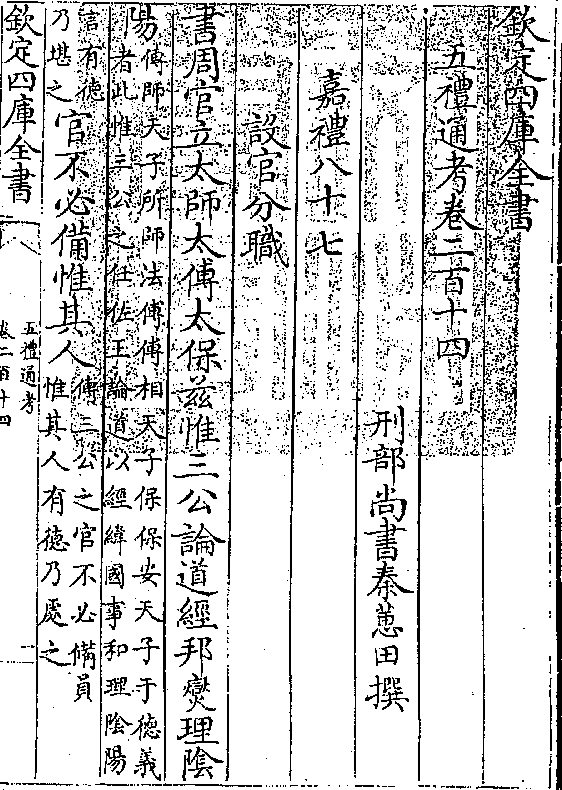 欽定四庫全書
五禮通考卷二百十四
刑部尚書秦蕙田撰
嘉禮八十七
設官分職
書周官立太師太傅太保兹惟三公論道經邦爕理陰
陽
傳師天子所師法傅傅相天子保保安天子于德義
者此惟三公之任佐王論道以經緯國事和理陰陽
言有德
乃堪之
官不必備惟其人
傳三公之官不必備員
惟其人有德乃處之
欽定四庫全書
五禮通考
卷二百十四
一